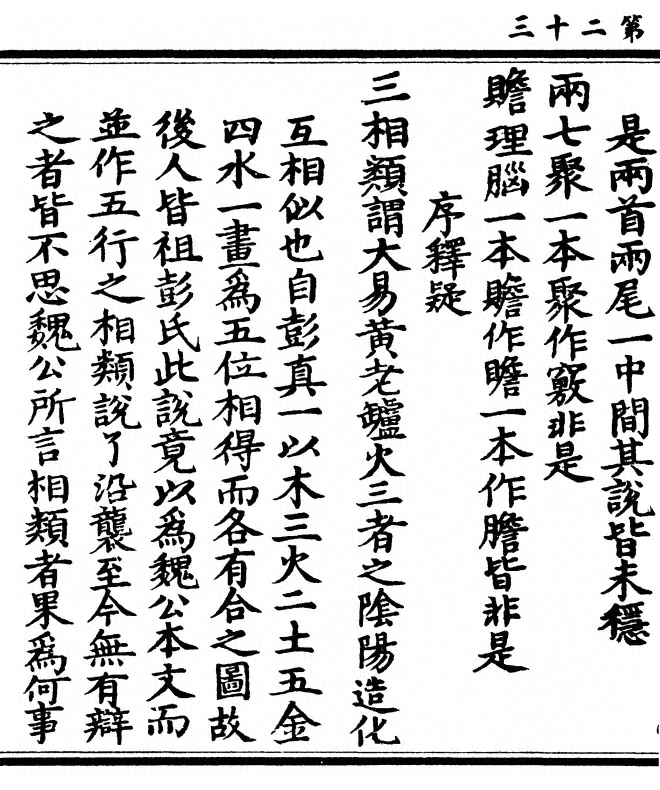 第二十三
是兩首兩尾一中間其說皆未穩
兩七聚一本聚作竅非是
贍理腦一本贍作瞻一本作膽皆非是
序釋疑
三相類謂大易黃老罏火三者之陰陽造化
互相似也自彭真一以木三火二土五金
四水一畫爲五位相得而各有合之圖故
後人皆祖彭氏此說竟以爲魏公本文而
並作五行之相類說了沿襲至今無有辯
之者皆不思魏公所言相類者果爲何事